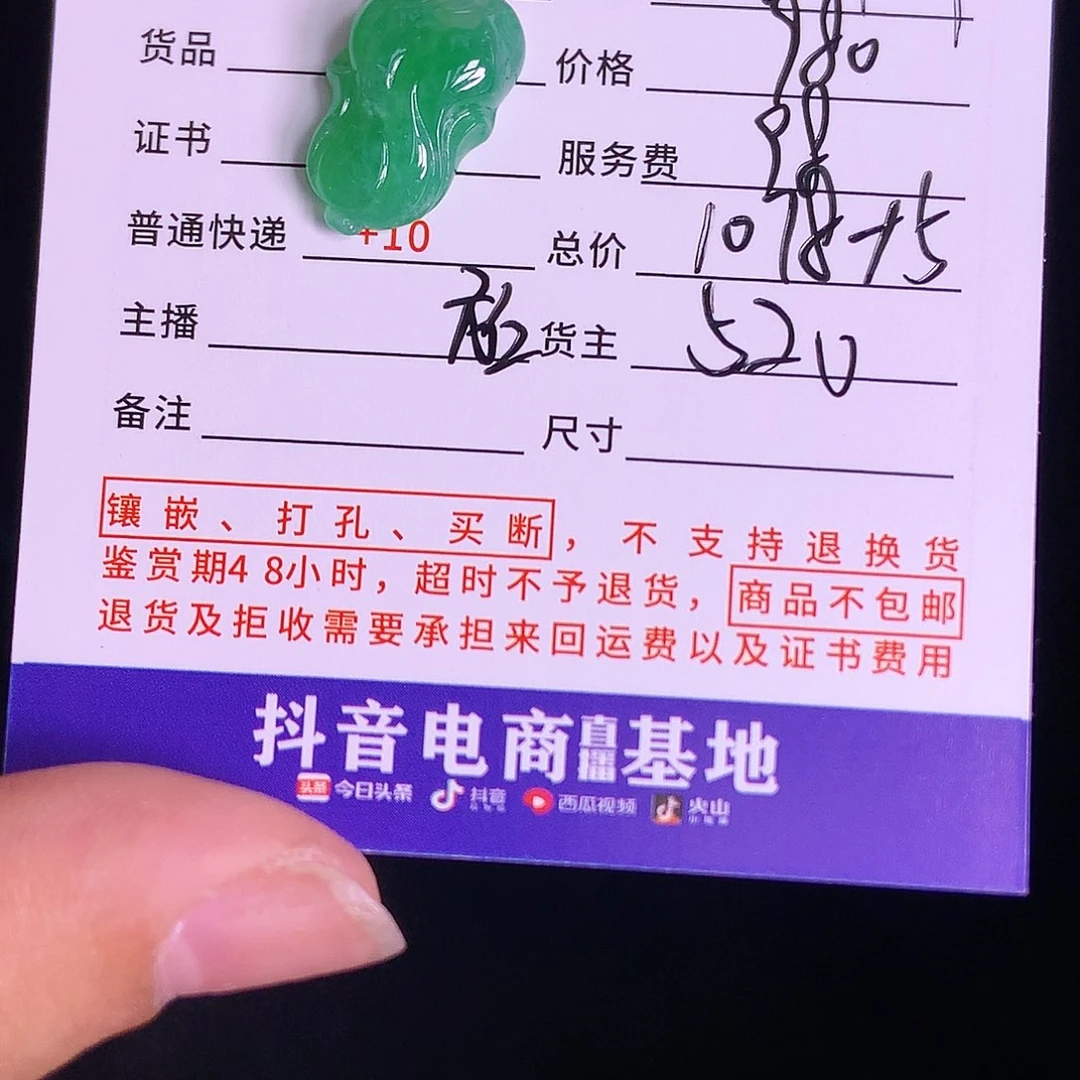 货品 价格 980
证书 服务费 98
普通快递 +10 总价 1078+15
主播 货主 520
备注 尺寸
镶嵌、打孔、买断，不支持退换货
鉴赏期48小时，超时不予退货，商品不包邮
退货及拒收需要承担来回运费以及证书费用
抖音电商直播基地
头条 今日头条 抖音 西瓜视频 火山